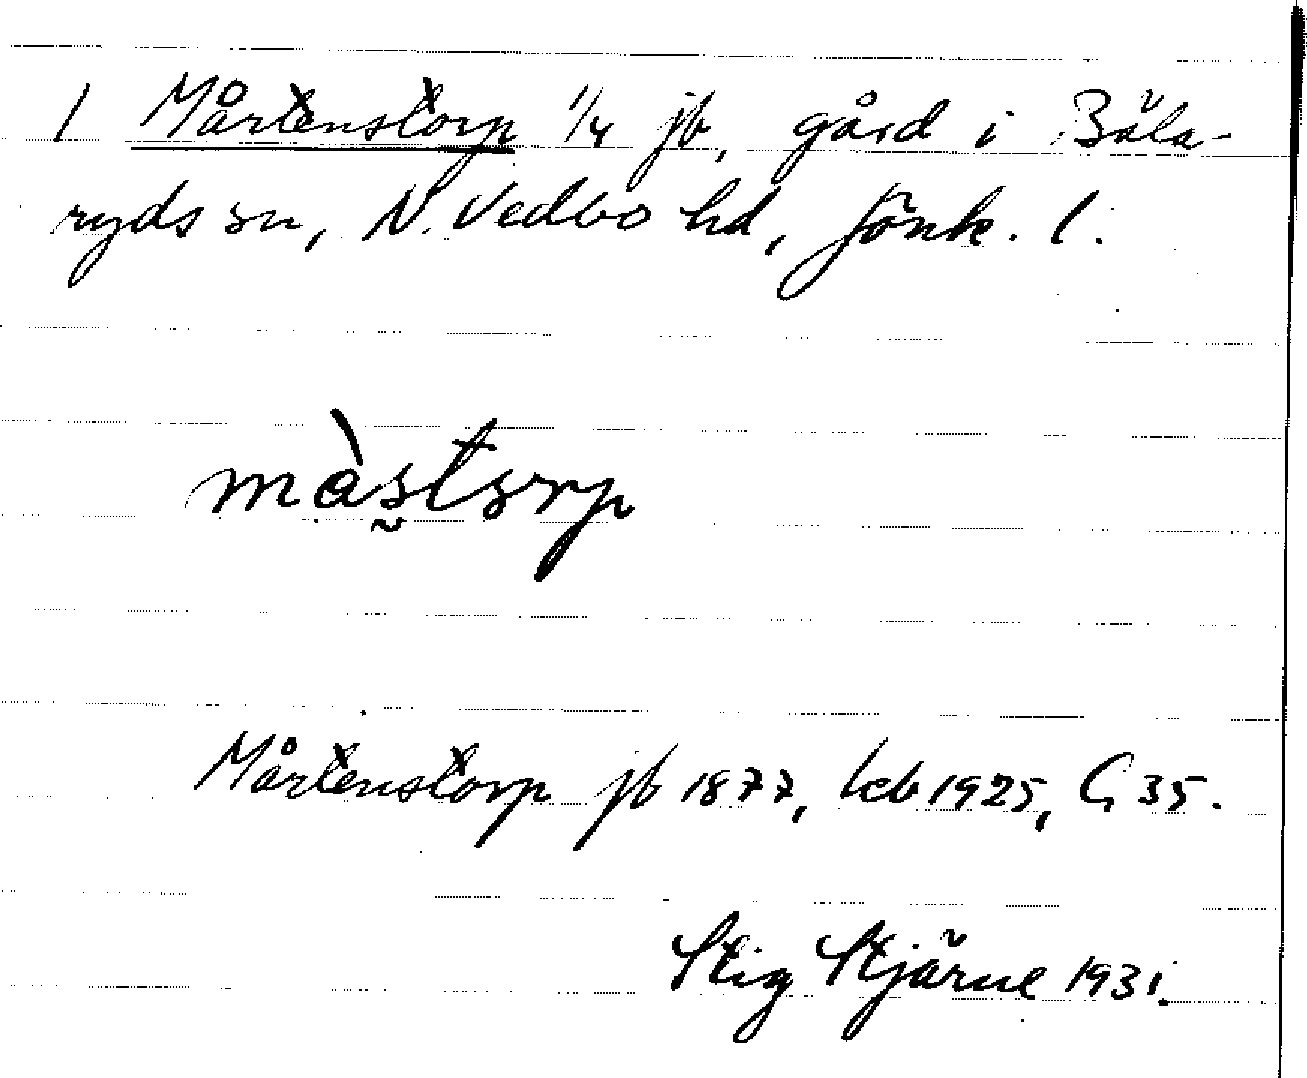 1 Mårtenstorp 1/4 jb, gård i Bäla-
ryds sn, N. Vedbo hd, Jönk. l.
màstorp
Mårtenstorp jb 1877, kb 1925, G 35.
Stig Stjärne 1931.